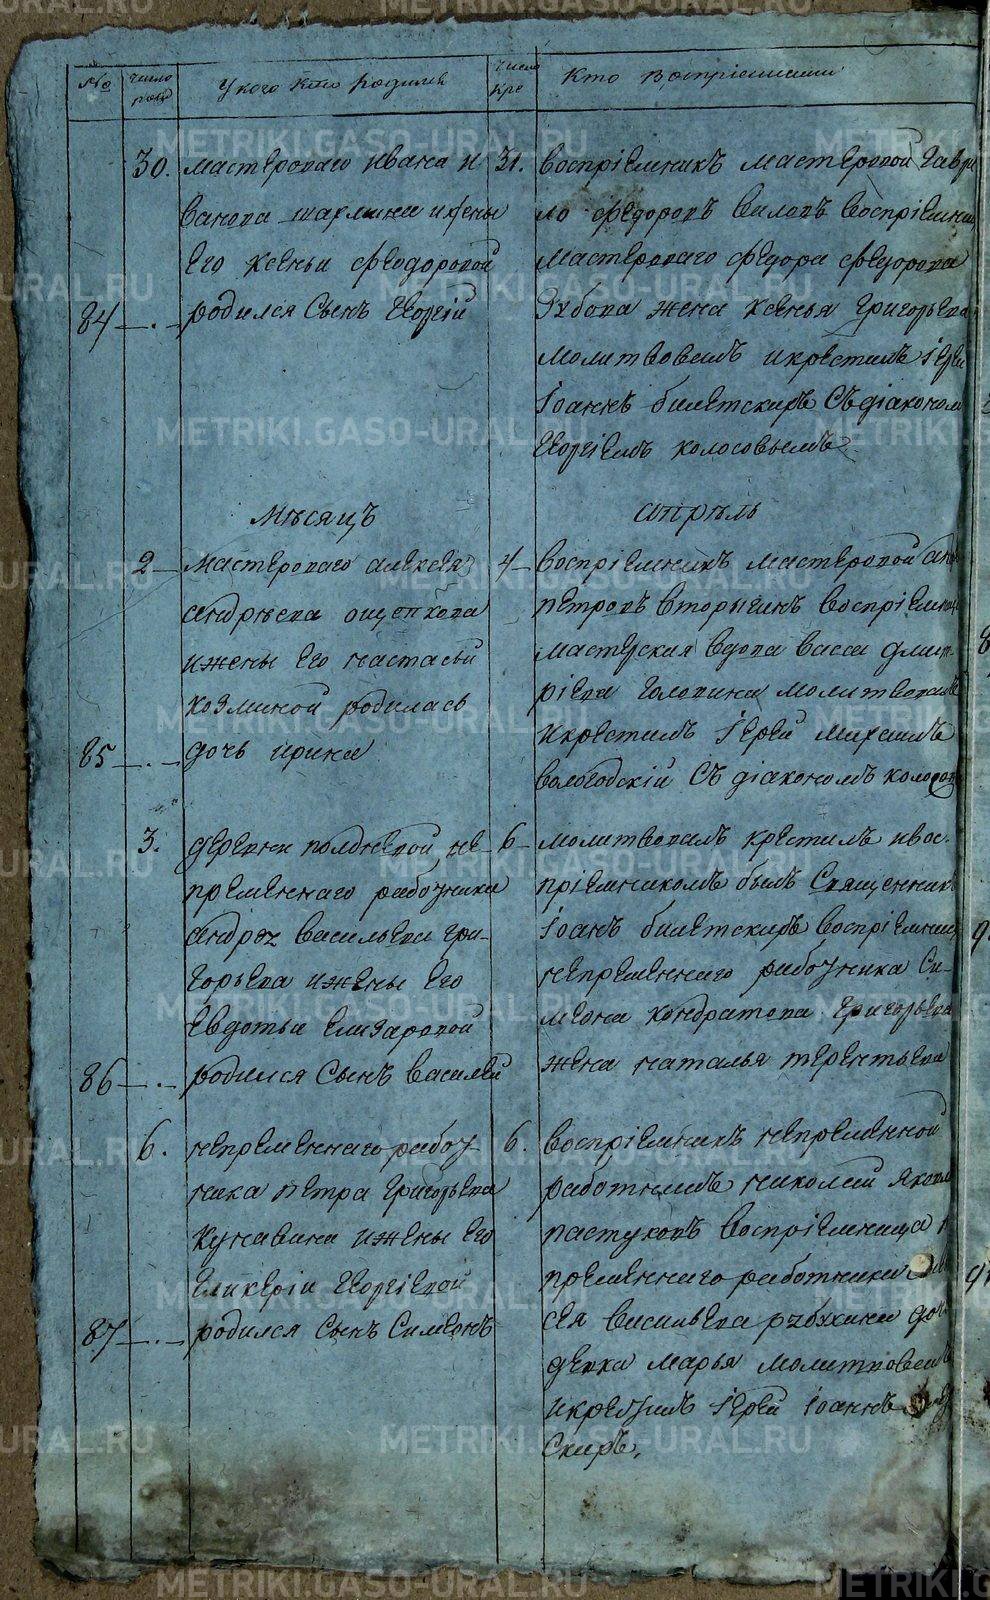 № число рожд У кого кто родился число кре Кто воспріемники
30. мастероваго ивана и
ванова шахмина и жены
его ксеньи феодоровой
84 родился Сынъ Георгій
31. воспріемникъ мастеровой гаври
ло федоровъ вилонъ воспріемниц
мастероваго федора федорова
жена ксенья григорьева
молитвовалъ и крестилъ іерей
Іоаннъ билетскиръ Съ діакономъ
Георгіемъ колосовымъ
Мѣсяцъ апрѣль
2 мастероваго алексея
андрѣева ощепкова
и жены его настасьи
козминой родилась
85 дочь ирина
4 воспріемникъ мастеровой
петровъ вторыгинъ воспріемница
мастерская вдова васса дмит-
ріева головина молитвовалъ
и крестилъ іерей михаилъ
вологодскій Съ діакономъ колосов
3. деревни полдневой не-
премѣннаго работника
андрея васильева гри-
горьева и жены его
евдотьи елизаровой
86 родился Сынъ василей
6 молитвовалъ крестилъ и вос-
пріемникомъ былъ Священникъ
Іоанъ билетскиръ воспріемниц
непремѣннаго работника Си-
меона кондратова григорьева
жена наталья терентьева
6. непремѣннаго работ
ника петра григорьева
кунавина и жены его
гликеріи георгіевой
87 родился Сынъ Симеонъ
6. воспріемникъ непремѣнной
работникъ николай яковл
пастуховъ воспріемница н
премѣннаго работника
сея васильева рябухина до
девка марья молитвовалъ
и крестилъ іерей Іоаннъ
Скиръ.
METRIKI.GASO-URAL.RU